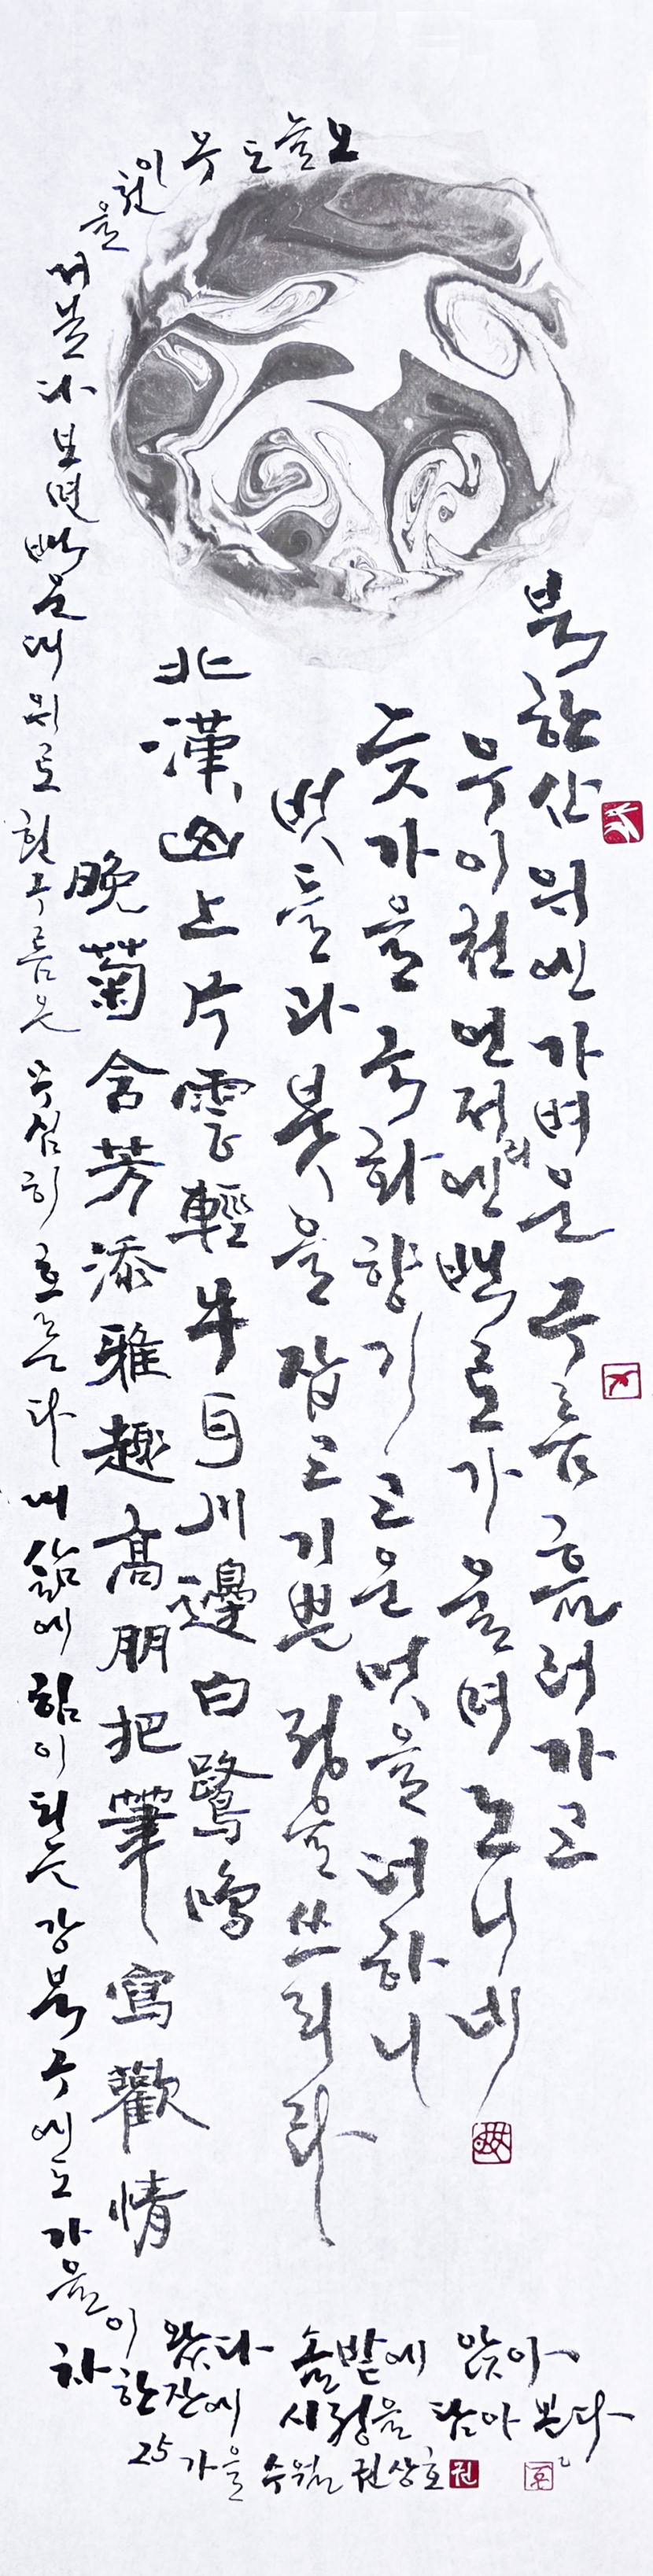 북한산 위엔 가벼운 구름 흘러가고
우이천 언저리엔 백로가 울며 노니네
늦가을 국화향기 고운 멋을 더하니
벗들과 붓을 잡고 기쁜 정을 쓰리라
北漢山上片雲輕牛耳川邊白鷺鳴
晩菊含芳添雅趣高朋把筆寫歡情
오늘도 우이천을 보면 백운대 위로 흰구름은 무심히 흐른다 내 삶에 힘이 되는 강북구에도 가을이
왔다 솔밭에 앉아
차 한잔에 시정을 담아 본다
25 가을 수월 권상호
권